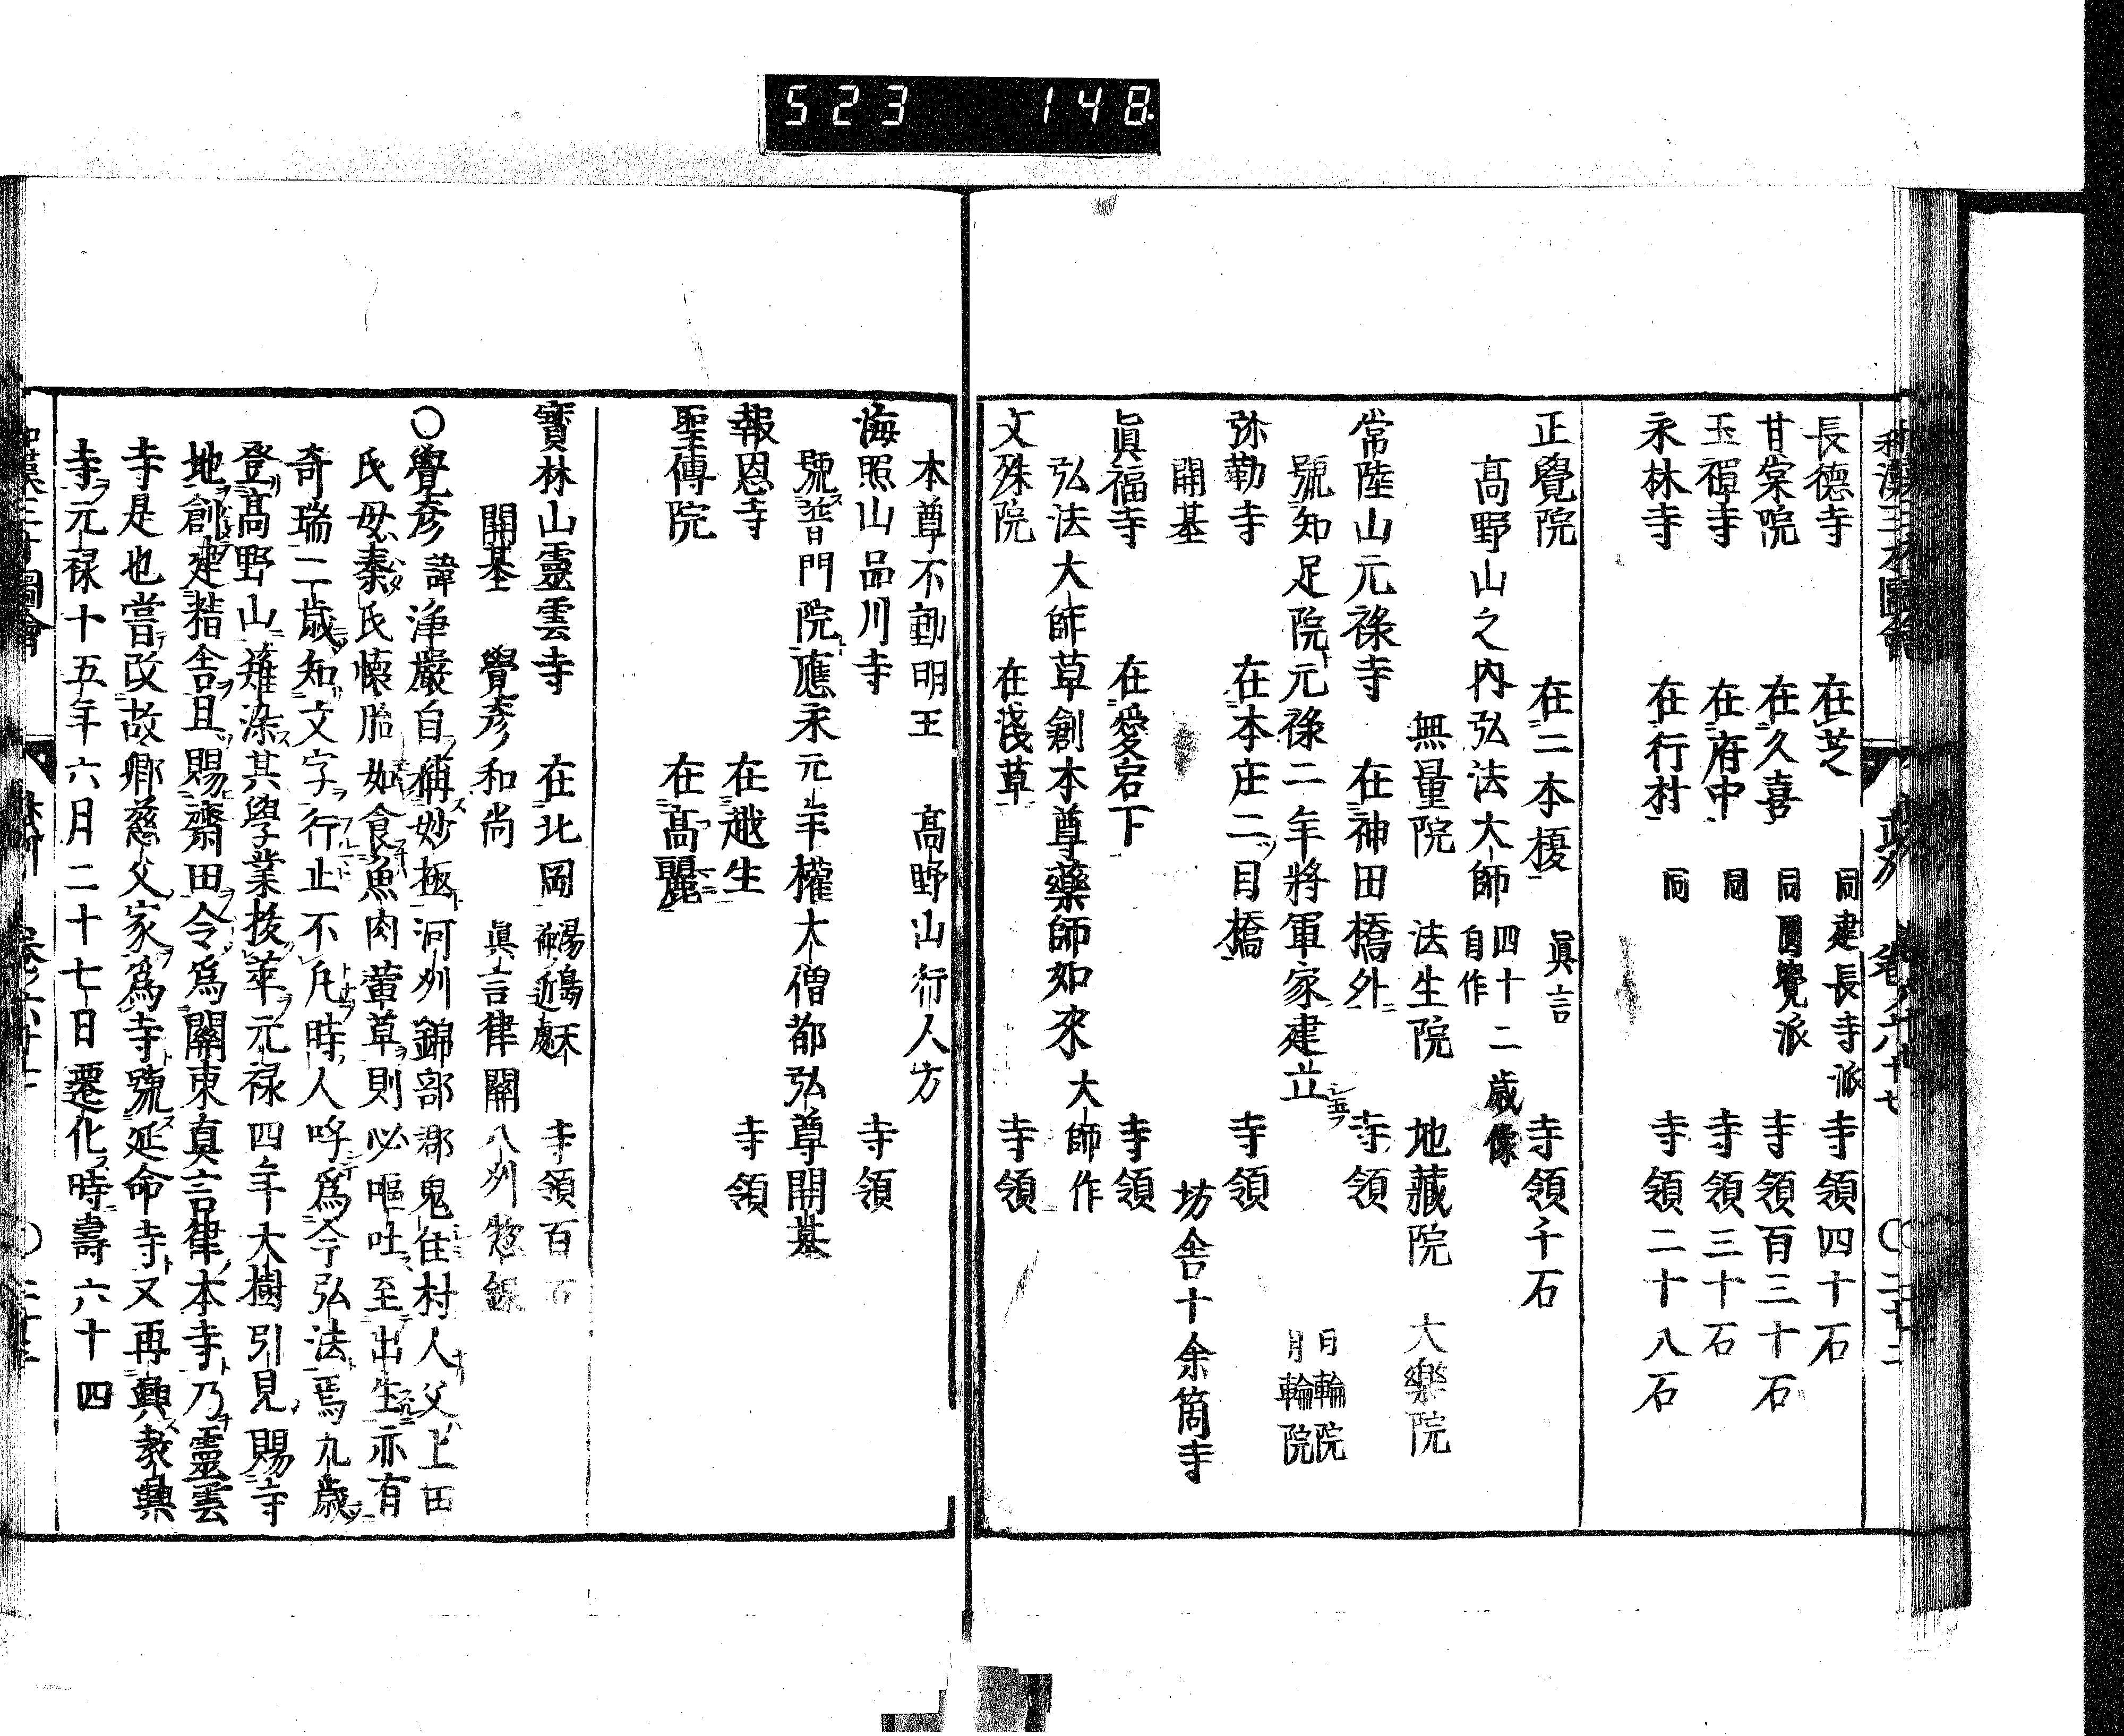 523 148
和漢三才圖會 武州 卷ノ六十七
長德寺 在芝 同建長寺派 寺領四十石
甘棠院 在久喜 同圓覺派 寺領百三十石
玉禪寺 在府中 同 寺領三十石
永林寺 在行村 同 寺領二十八石
正覺院 在二本榎 眞言 寺領千石
高野山之内弘法大師四十二歳像自作
無量院 法生院 地藏院 大樂院
常陸山元祿寺 在神田橋外 寺領
號知足院元祿二年將軍家建立 日輪院 月輪院
弥勒寺 在本庄二ツ目橋 寺領
開基 坊舎十余箇寺
眞福寺 在愛宕下 寺領
弘法大師草創本尊藥師如來大師作
文殊院 在淺草 寺領
本尊不動明王 高野山行人方
海照山品川寺 寺領
號普門院應永元年權大僧都弘尊開基
報恩寺 在越生 寺領
聖傳院 在高麗
寳林山靈雲寺 在北岡湯嶋天神近處 寺領百石
開基 覺彥和尚 眞言律關八刕惣錄
〇覺彥諱淨嚴自稱妙極河刕錦部郡鬼住村人父上田
氏母秦氏懷胎如食魚肉葷草則必嘔吐至出生亦有
奇瑞二歳知文字行止不凡時人呼爲今弘法焉九歳
登高野山薙染其學業抜萃元禄四年大樹引見賜寺
地創建精舎且賜齋田令爲關東眞言律本寺乃靈雲
寺是也嘗改故郷慈父家爲寺號延命寺又再興教興
寺元禄十五年六月二十七日遷化時壽六十四